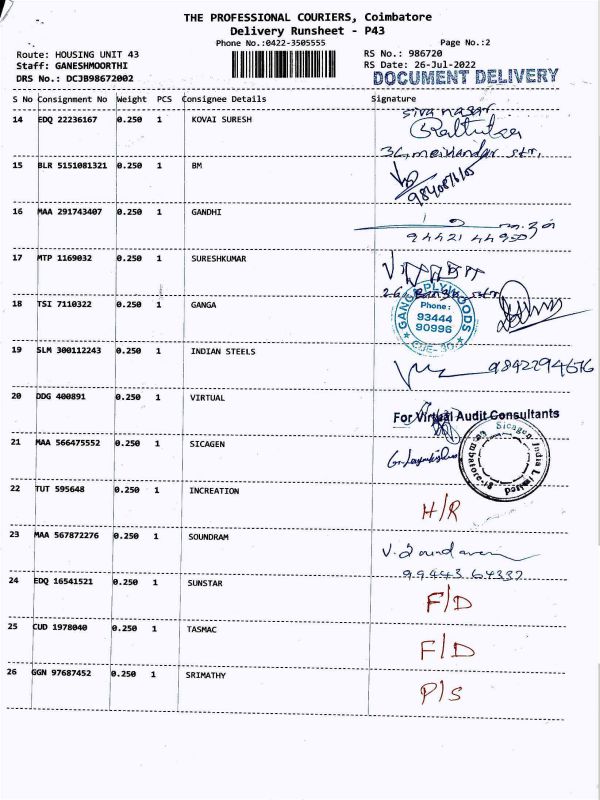 THE PROFESSIONAL COURIERS, Coimbatore
Delivery Runsheet - P43
Phone No.:0422-3505555
Page No.:2
Route: HOUSING UNIT 43
RS No.: 986720
Staff: GANESHMOORTHI
RS Date: 26-Jul-2022
DRS No.: DCJB98672002
DOCUMENT DELIVERY
S No Consignment No Weight PCS Consignee Details Signature
14 EDQ 22236167 0.250 1 KOVAI SURESH
siva nagar
15 BLR 5151081321 0.250 1 BM
16 MAA 291743407 0.250 1 GANDHI
94421 44950
17 MTP 1169032 0.250 1 SURESHKUMAR
18 TSI 7110322 0.250 1 GANGA
GANGA PLYWOODS
Phone :
93444
90996
CBE-30
19 SLM 300112243 0.250 1 INDIAN STEELS
9842294616
20 DDG 400891 0.250 1 VIRTUAL
For Virtual Audit Consultants
21 MAA 566475552 0.250 1 SICAGEN
Sicagen India Limited
22 TUT 595648 0.250 1 INCREATION
H/R
23 MAA 567872276 0.250 1 SOUNDRAM
99443 64337
24 EDQ 16541521 0.250 1 SUNSTAR
F/D
25 CUD 1978040 0.250 1 TASMAC
F/D
26 GGN 97687452 0.250 1 SRIMATHY
P/S